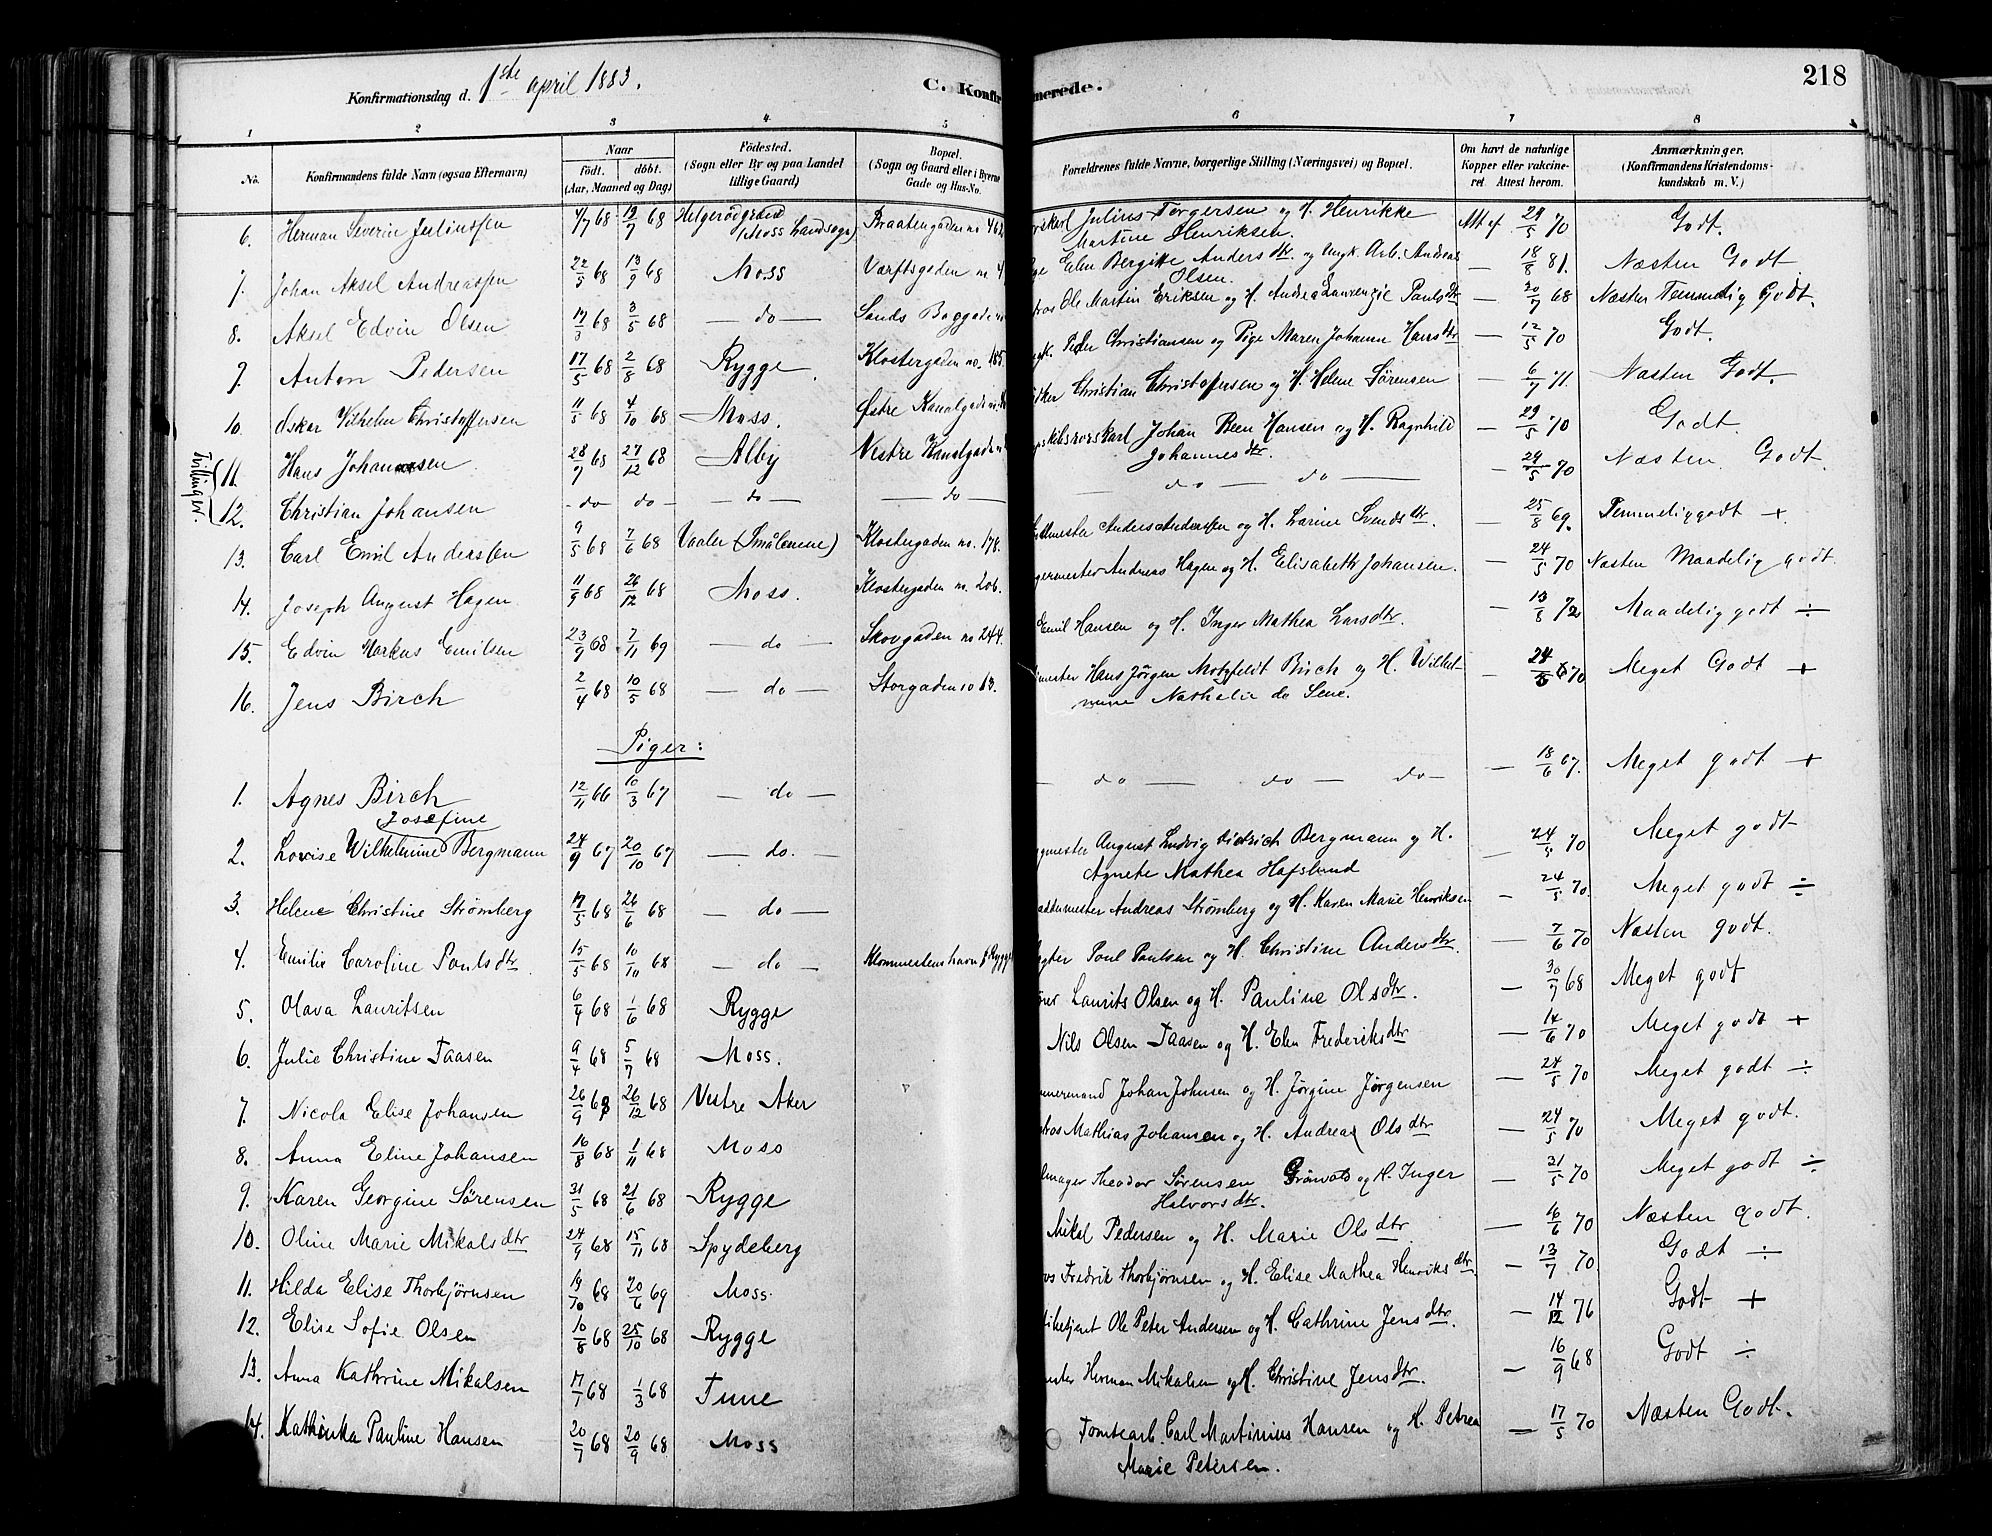 Konfirmationsdag d. 1ste april 1883.
C. Konfirmerede.
218
1 2 3 4 5 6 7 8
No. Konfirmandens fulde Navn (ogsaa Efternavn) Naar Født. døbt. (Aar, Maaned og Dag) Fødested. (Sogn eller By og paa Landet tillige Gaard) Bopæl. (Sogn og Gaard eller i Byerne Gade og Hus-No. Forældrenes fulde Navne, borgerlige Stilling (Næringsvei) og Bopæl. Om havt de naturlige Kopper eller vakcineret Attest herom. Anmærkninger. (Konfirmandens Kristendomskundskab m. V.)
6. Herman Severin Juliussen 4/7 68 19/7 68 Helgerødgrænd (Moss Landsogn) Braatengaden no 462 Julius Torgersen og H. Henrikke Martine Henriksen. Att af 29/5 70 Godt.
7. Johan Aksel Andreassen 22/5 68 13/9 68 Moss Værftsgaden no. Elen Bergitte Andersdtr. og Ungk. Arb. Andreas Olsen. — 18/8 81. Næsten Godt
8. Aksel Edvin Olsen 17/3 68 3/5 68 — do — Sands Baggade Ole Martin Eriksen og H. Andrea Laurenzie Paulsdtr — 20/7 68 Næsten Temmelig Godt.
9. Anton Pedersen 17/5 68 2/8 68 Rygge. Klostergaden no. 185 Peder Christiansen og Pige Maren Johanne Hansdtr — 12/5 70 Godt.
10. Oskar Vilhelm Christoffersen 11/5 68 4/10 68 Moss. Østre Kanalgade Christian Christofersen og H. Helene Sørensen — 6/7 71. Næsten Godt.
Tvillinger.
11. Hans Johansen 28/7 68 27/12 68 Alby Vestre Kanalgaden Johan Been Hansen og H. Ragnhild Johannesdtr. — 29/5 70 Godt
12. Christian Johansen - do - do - — do — — do — — do — do — — 29/5 70 Næsten Godt.
13. Carl Emil Anderssen 9/5 68 7/6 68 Vaaler (Smålenene) Klostergaden no. 178. Anders Anderssen og H. Larine Svendsdtr. — 25/8 69. Temmelig godt +
14. Joseph August Hagen 11/9 68 26/12 68 Moss. Klostergaden no. 206. Andreas Hagen og H. Elisabeth Johansen. — 24/5 70 Næsten Maadelig godt.
15. Edvin Markus Emilsen 23/9 68 7/11 69 — do — Skovgaden no 244. Emil Hansen og H. Inger Mathea Larsdtr. — 13/8 72 Maadelig godt ÷
16. Jens Birch 2/4 68 10/5 68 — do — Storgaden no 63. Hans Jørgen Motzfeldt Birch og H. Wilhelmine Nathalie de Seue. — 24/5 70 Meget Godt +
Piger:
1. Agnes Birch 12/11 66 10/3 67 — do — — do — do — do — — 18/6 67. Meget godt +
2. Lovise Wilhelmine Josefine Bergmann 24/9 67 20/10 67 — do. — August Ludvig Didrich Bergmann og H. Agnete Mathea Hafslund — 24/5 70 Meget godt
3. Helene Christine Strømberg 17/5 68 26/6 68 — do — Andreas Strømberg og H. Karen Marie Henriksen — 24/5 70. Meget godt ÷
4. Emilie Caroline Paulsdtr. 15/5 68 10/10 68 — do — Klommestenshavn p Rygge Poul Paulsen og H. Christine Andersdtr. — 7/6 70 Næsten godt.
5. Olava Lauritsen 6/4 68 1/6 68 Rygge Laurits Olsen og H. Pauline Olsdtr. — 30/7 68 Meget godt
6. Julie Christine Taasen 9/4 68 5/7 68 Moss. Nils Olsen Taasen og H. Elen Frederiksdtr — 14/6 70 Meget godt +
7. Nicola Elise Johansen 26/9 68 26/12 68 Vestre Aker Johan Johnsen og H. Jørgine Jørgensen — 24/5 70 Meget godt ÷
8. Anna Eline Johansen 16/8 68 1/11 68 Moss Mathias Johansen og H. Andrea Olsdtr — 24/5 70 Meget godt.
9. Karen Georgine Sørensen 31/5 68 21/6 68 Rygge Theodor Sørensen Grønvold og H. Inger Halvorsdtr. — 31/5 70 Meget godt ÷
10. Oline Marie Mikalsdtr 24/9 68 15/11 68 Spydeberg Mikal Pedersen og H. Marie Olsdtr — 16/6 70 Næsten godt.
11. Hilda Elise Thorbjørnsen 19/10 68 20/6 69 Moss. Fredrik Thorbjørnsen og H. Elise Mathea Henriksdtr. — 13/7 70. Godt ÷
12. Elise Sofie Olsen 10/8 68 25/10 68 Rygge Ole Peter Andersen og H. Cathrine Jensdtr. — 14/12 76 Godt +
13. Anna Kathrine Mikalsen 17/1 68 1/3 68 Tune Herman Mikalsen og H. Christine Jensdtr. — 16/9 68 Godt ÷
14. Kathinka Pauline Hansen 20/7 68 20/9 68 Moss Tomtearb. Carl Martinius Hansen og H. Petrea Marie Petersen. — 17/5 70 Næsten Godt.